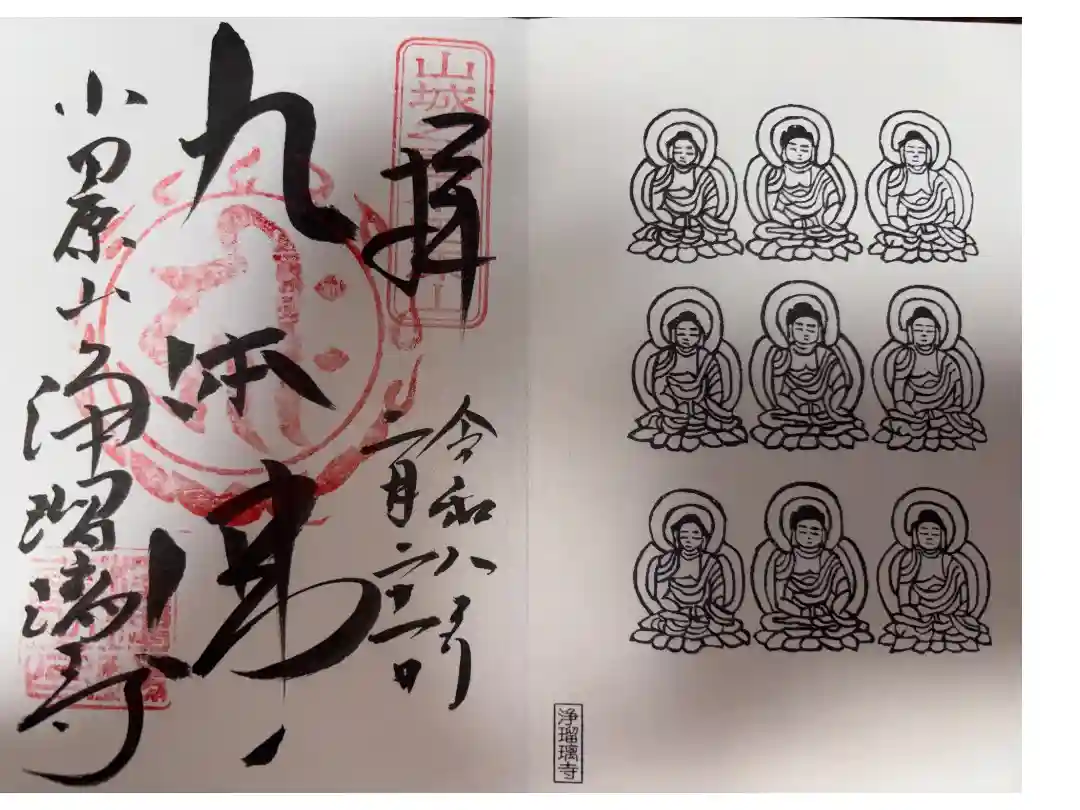 浄瑠璃寺
山城
拝
令和八年
二月二十一日
九体佛
小田原山浄瑠璃寺